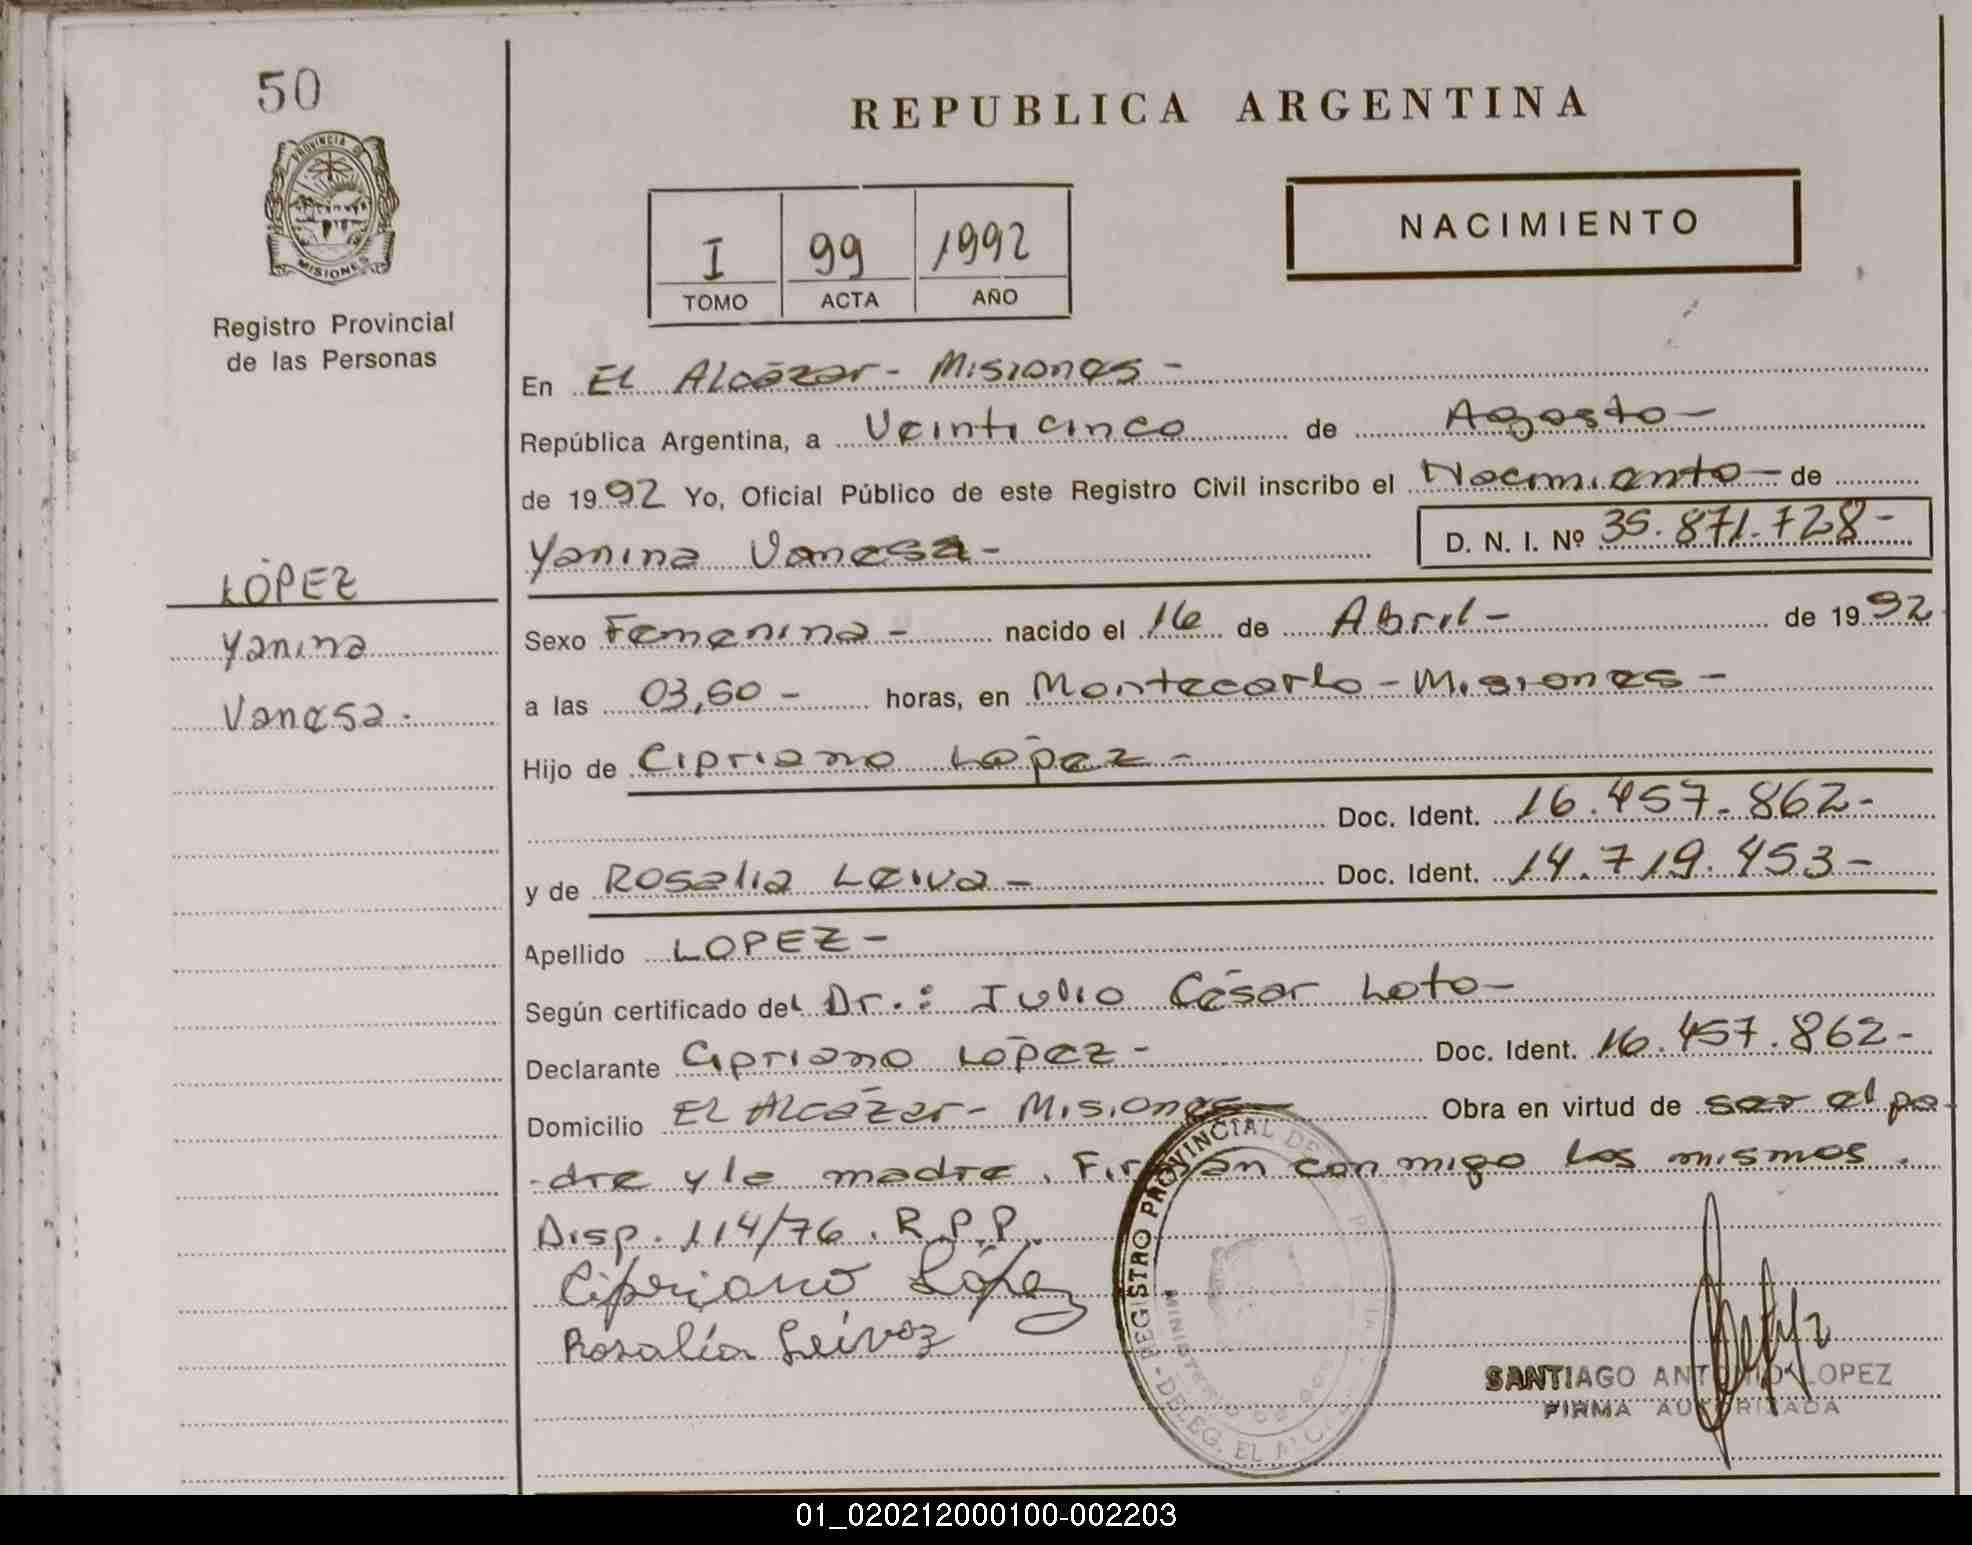 50
PROVINCIA DE
MISIONES
Registro Provincial
de las Personas
LÓPEZ
Yanina
Vanesa.
REPUBLICA ARGENTINA
I 99 1992
TOMO ACTA AÑO
NACIMIENTO
En El Alcázar - Misiones -
República Argentina, a Veinticinco de Agosto -
de 1992 Yo, Oficial Público de este Registro Civil inscribo el Nacimiento - de
Yanina Vanesa - D. N. I. Nº 35.871.728 -
Sexo Femenina - nacido el 16 de Abril - de 1992
a las 03,50 - horas, en Montecarlo - Misiones -
Hijo de Cipriano López -
Doc. Ident. 16.457.862 -
y de Rosalia Leiva - Doc. Ident. 14.719.453 -
Apellido LOPEZ -
Según certificado del Dr.: Julio César Loto -
Declarante Cipriano López - Doc. Ident. 16.457.862 -
Domicilio El Alcázar - Misiones - Obra en virtud de ser el pa-
-dre y la madre. Firman conmigo los mismos.
Disp. 114/76. R.P.P.
Cipriano López
Rosalía Leivaz
REGISTRO PROVINCIAL DE
MINISTERIO DE
DELEG. EL ALCAZAR
SANTIAGO ANTONIO LOPEZ
FIRMA AUTORIZADA
01_020212000100-002203